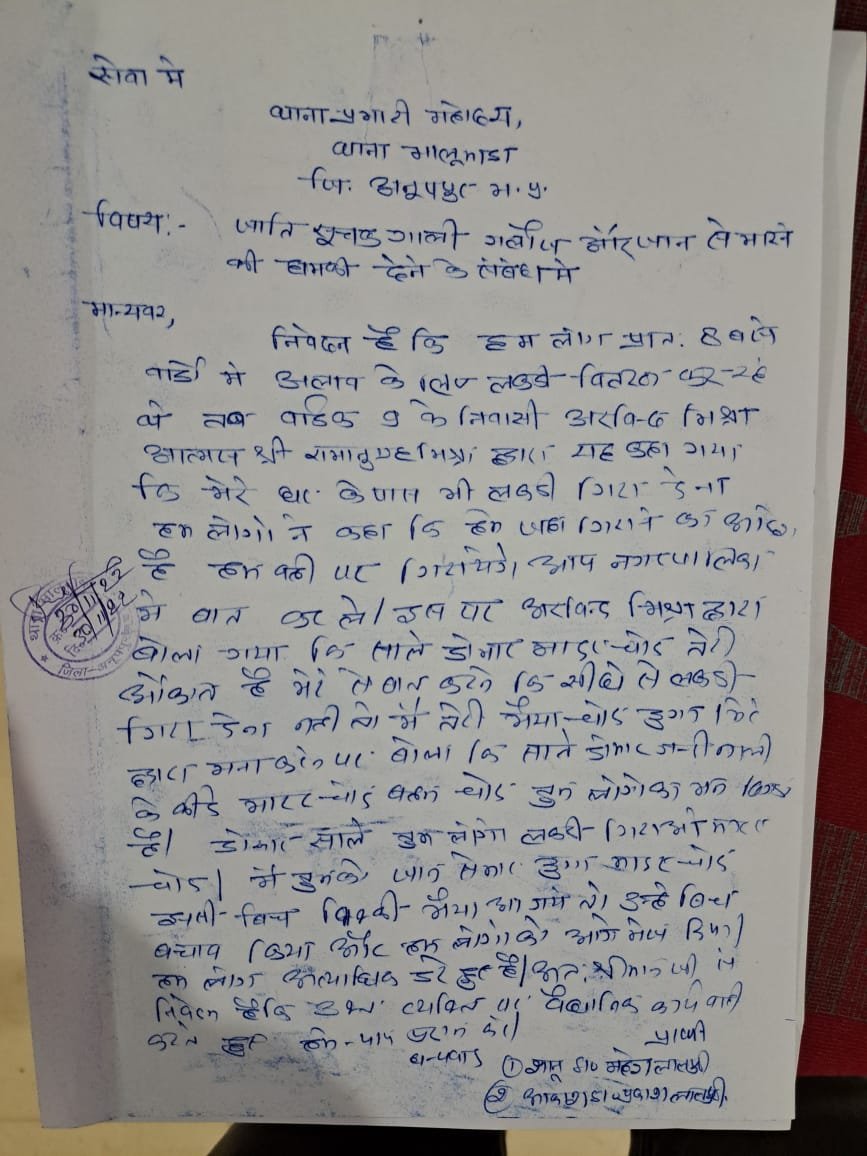 सेवा मे
थाना प्रभारी महोदय,
थाना भालूमाडा
जि. अनूपपुर म.प्र.
विषय:- जाति सूचक गाली गलौज और जान से मारने
की धमकी देने के संबंध मे
मान्यवर,
निवेदन है कि हम लोग प्रात: 8 बजे
वार्डो मे अलाव के लिए लकडी वितरण कर रहे
थे तब वार्ड क्र 9 के निवासी अरविन्द मिश्रा
आत्मज श्री रामानुग्रह मिश्रा द्वारा यह कहा गया
कि मेरे घर के पास भी लकडी गिरा देना
हम लोगो ने कहा कि हमे जहा गिराने का आदेश
है हम वही पर गिरायेगे, आप नगरपालिका
मे बात कर ले। इस पर अरविन्द मिश्रा द्वारा
बोला गया कि साले डोमार मादर चोद तेरी
औकात है मेरे से बात करने कि सीधे से लकडी
गिरा देना नही तो मै तेरी मैया चोद दुगा मेरे
द्वारा मना करने पर बोला कि साले डोमार नाली
के कीडे मादर चोद बहन चोद तुम लोगो का मन
है। डोमार साले तुम लोग लकडी गिराओ मादर
चोद। मै तुमको जान से मार दुगा मादर चोद
इसी बिच विक्की भैया आ गये तो उन्हे बिच
बचाव किया और हम लोगो को आगे भेज दिया।
हम लोग अत्याधिक डरे हुए है। अत: श्रीमान जी से
निवेदन है कि उक्त व्यक्ति पर वैधानिक कार्यवाही
करते हुए हमे न्याय प्रदान करे।
धन्यवाद
प्रार्थी
①
②
थाना भालूमाडा
20/11/22
जिला-अनूपपुर